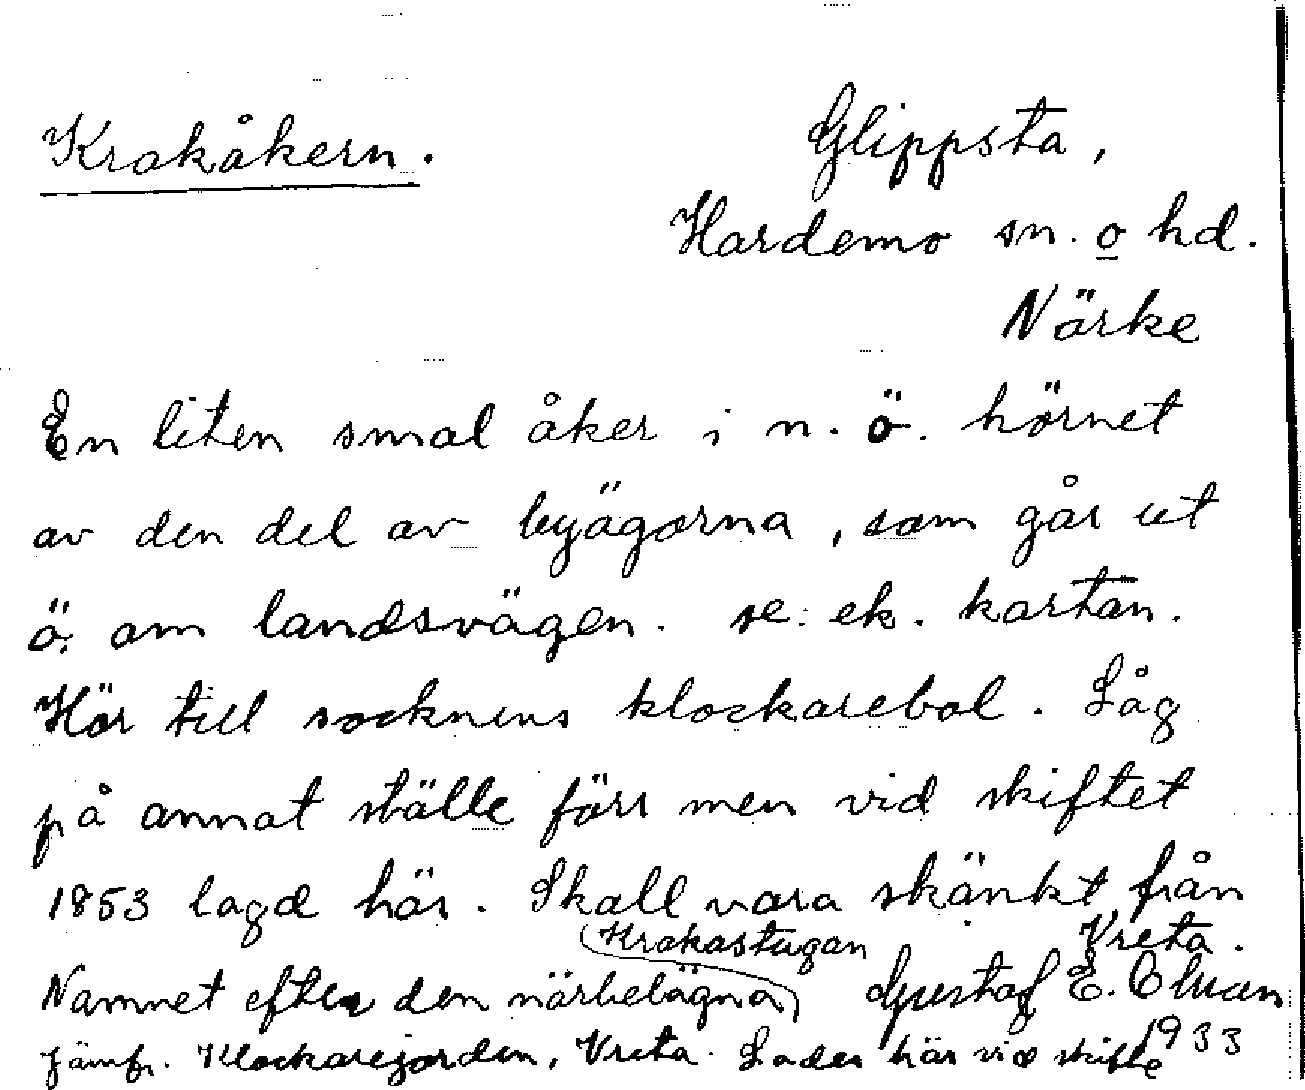 Krakåkern.
Glippsta,
Hardemo sn. o hd.
Närke
En liten smal åker i n. ö. hörnet
av den del av byägorna, som går ut
ö. om landsvägen. se: ek. kartan.
Hör till socknens klockarebol. Låg
på annat ställe förr men vid skiftet
1853 lagd här. Skall vara skänkt från
Vreta.
Namnet efter den närbelägna Krakastugan
Gustaf E.
1933
Jämför. Klockarejorden, Vreta. Lades här vid skifte